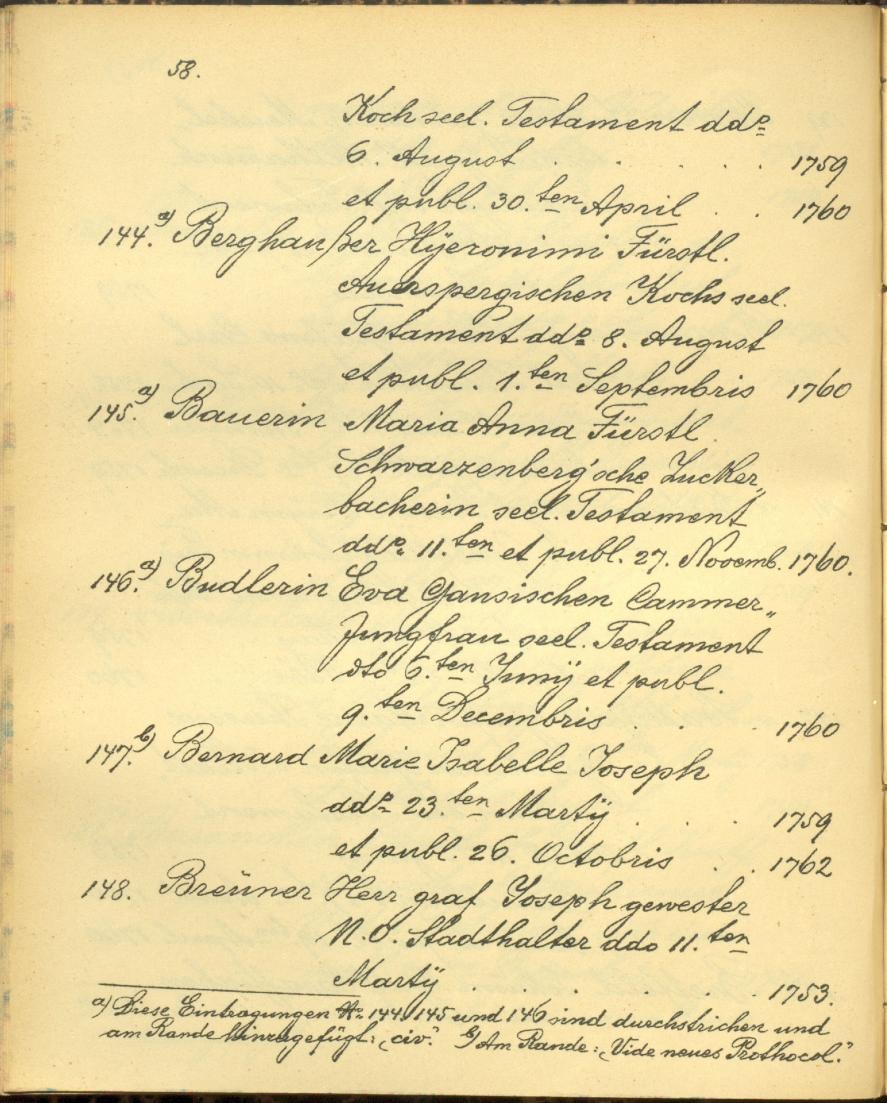 58.
Koch seel. Testament ddo
6. August . . . . 1759
et publ. 30.ten April . . 1760
144.a) Berghaußer Hÿeronimi Fürstl.
Auerspergischen Kochs seel.
Testament ddo 8. August
et publ. 1.ten Septembris 1760
145.a) Bauerin Maria Anna Fürstl.
Schwarzenberg'sche Zucker„
bacherin seel. Testament
ddo 11.ten et publ. 27. Novemb. 1760.
146.a) Budlerin Eva Gansischen Cammer„
Jungfrau seel. Testament
dto 6.ten Junÿ et publ.
9.ten Decembris . . . 1760
147.b) Bernard Marie Isabelle Joseph
ddo 23.ten Martÿ . . . 1759
et publ. 26. Octobris . . 1762
148. Breüner Herr graf Joseph gewester
N.O. Stadthalter ddo 11.ten
Martÿ . . . . . . 1753.
a) Diese Eintragungen No 144, 145 und 146 sind durchstrichen und
am Rande hinzugefügt: „civ.“ b) Am Rande: „Vide neues Prothocol.“